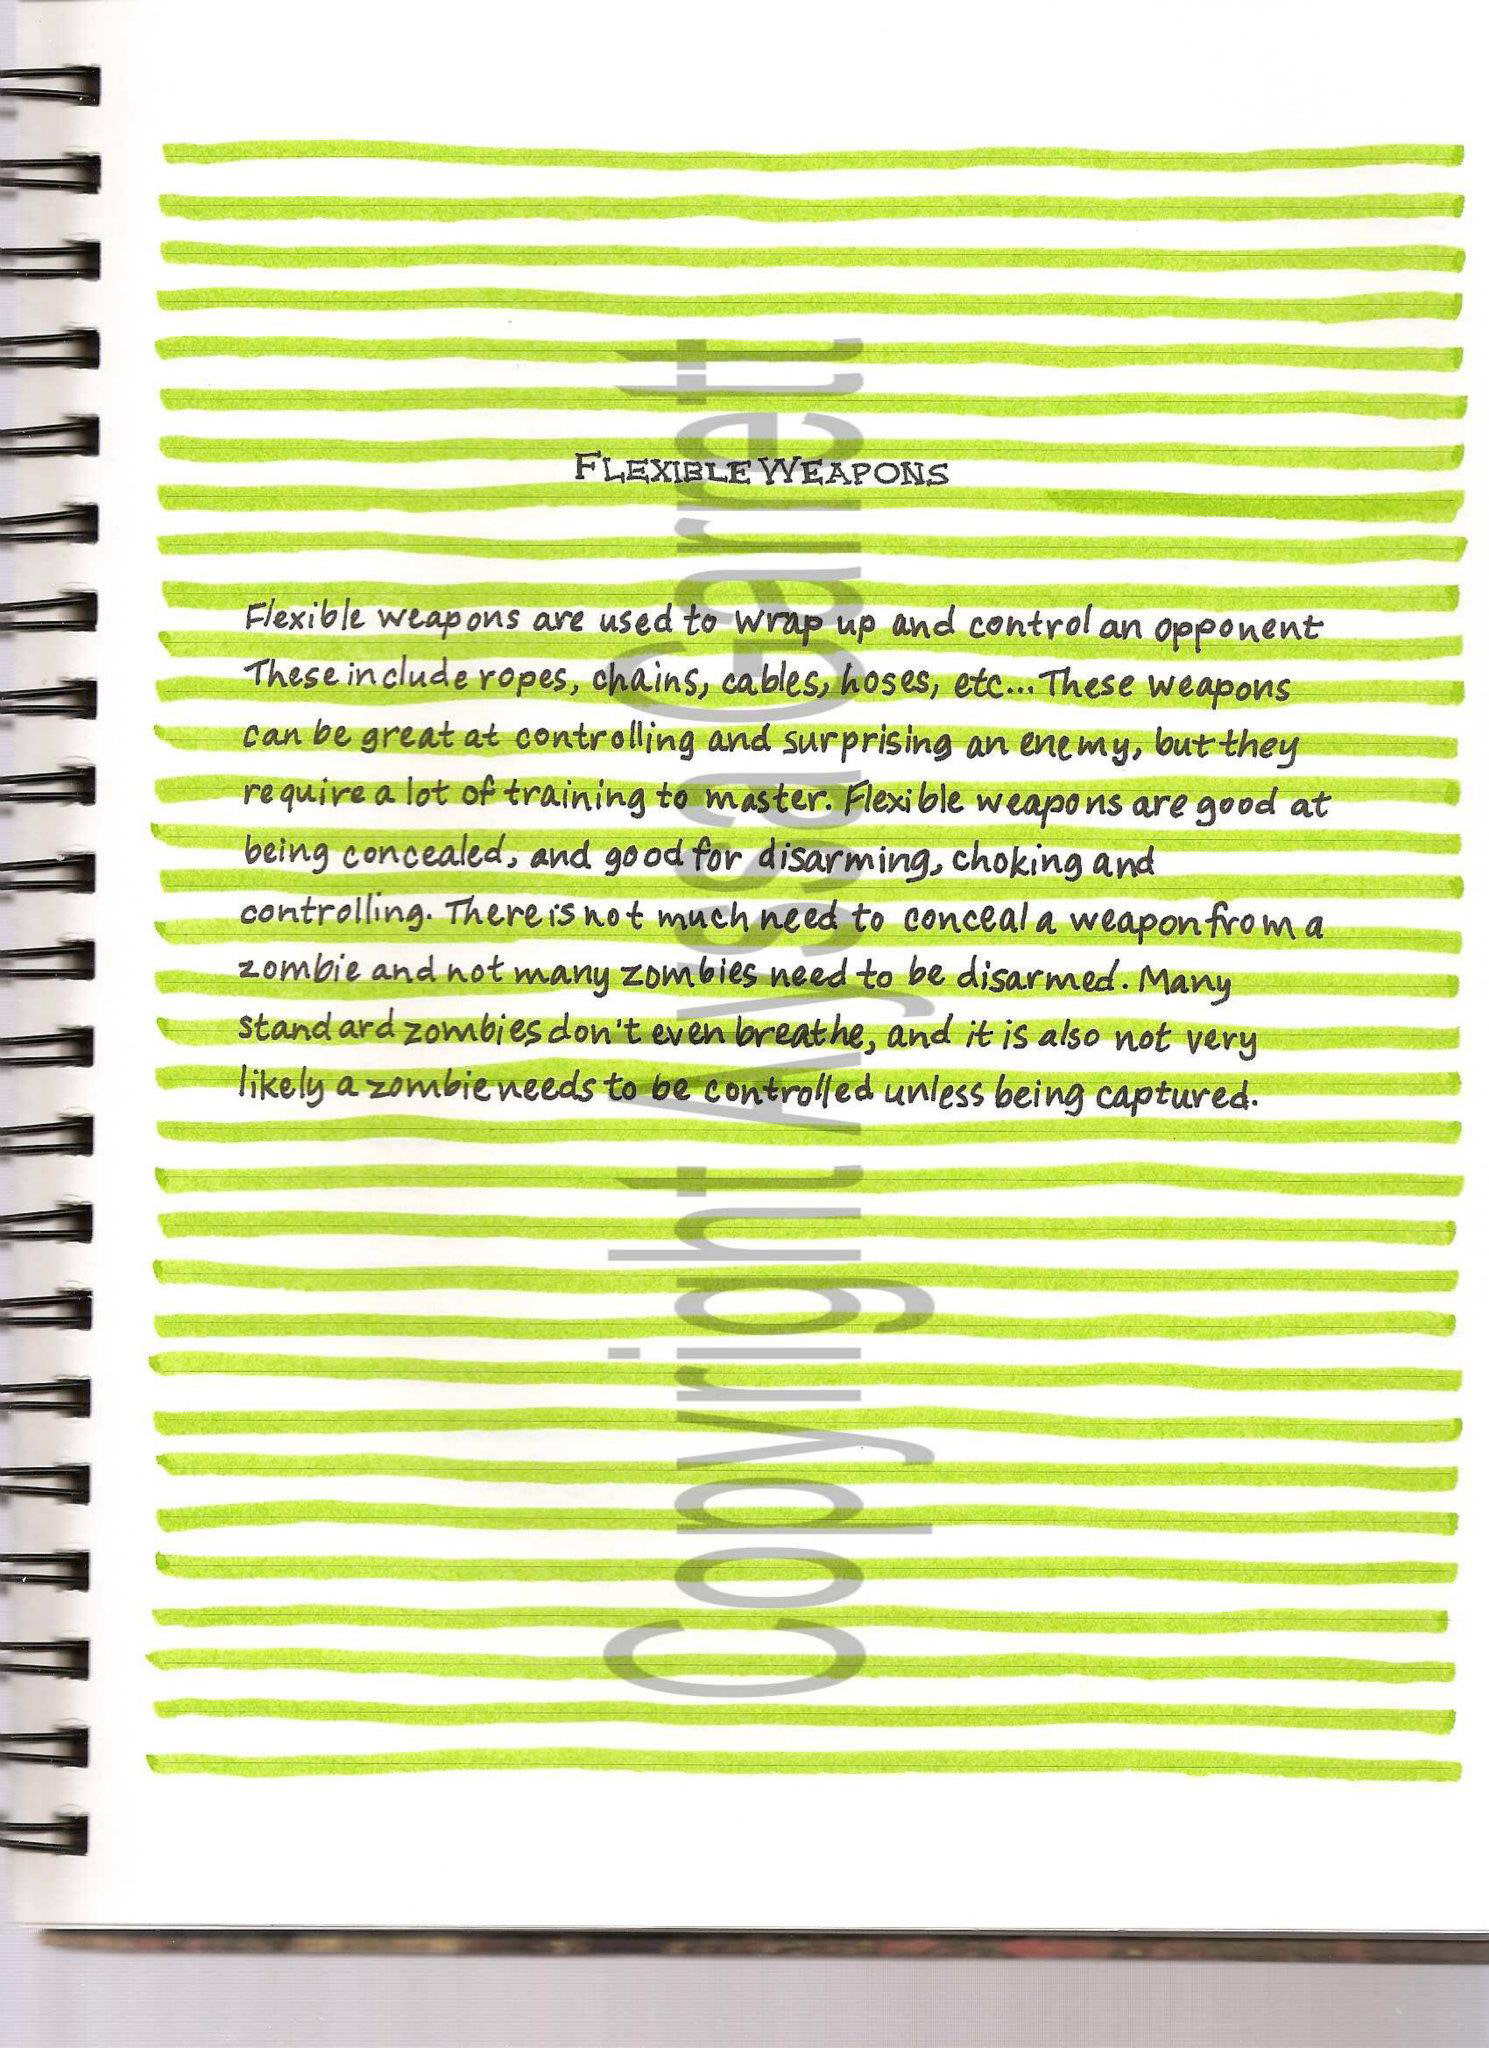 FLEXIBLE WEAPONS
Flexible weapons are used to wrap up and control an opponent
These include ropes, chains, cables, hoses, etc... These weapons
can be great at controlling and surprising an enemy, but they
require a lot of training to master. Flexible weapons are good at
being concealed, and good for disarming, choking and
controlling. There is not much need to conceal a weapon from a
zombie and not many zombies need to be disarmed. Many
standard zombies don't even breathe, and it is also not very
likely a zombie needs to be controlled unless being captured.
Copyright Alyssa Garret